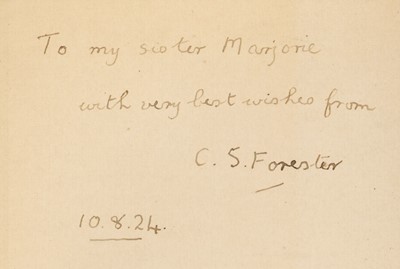 To my sister Marjorie
with very best wishes from
C. S. Forester
10.8.24.